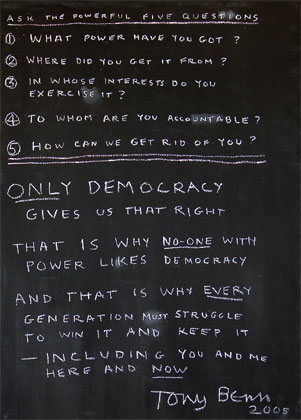 ASK THE POWERFUL FIVE QUESTIONS
① WHAT POWER HAVE YOU GOT?
② WHERE DID YOU GET IT FROM?
③ IN WHOSE INTERESTS DO YOU
EXERCISE IT?
④ TO WHOM ARE YOU ACCOUNTABLE?
⑤ HOW CAN WE GET RID OF YOU?
ONLY DEMOCRACY
GIVES US THAT RIGHT
THAT IS WHY NO-ONE WITH
POWER LIKES DEMOCRACY
AND THAT IS WHY EVERY
GENERATION MUST STRUGGLE
TO WIN IT AND KEEP IT
— INCLUDING YOU AND ME
HERE AND NOW
Tony Benn
2005